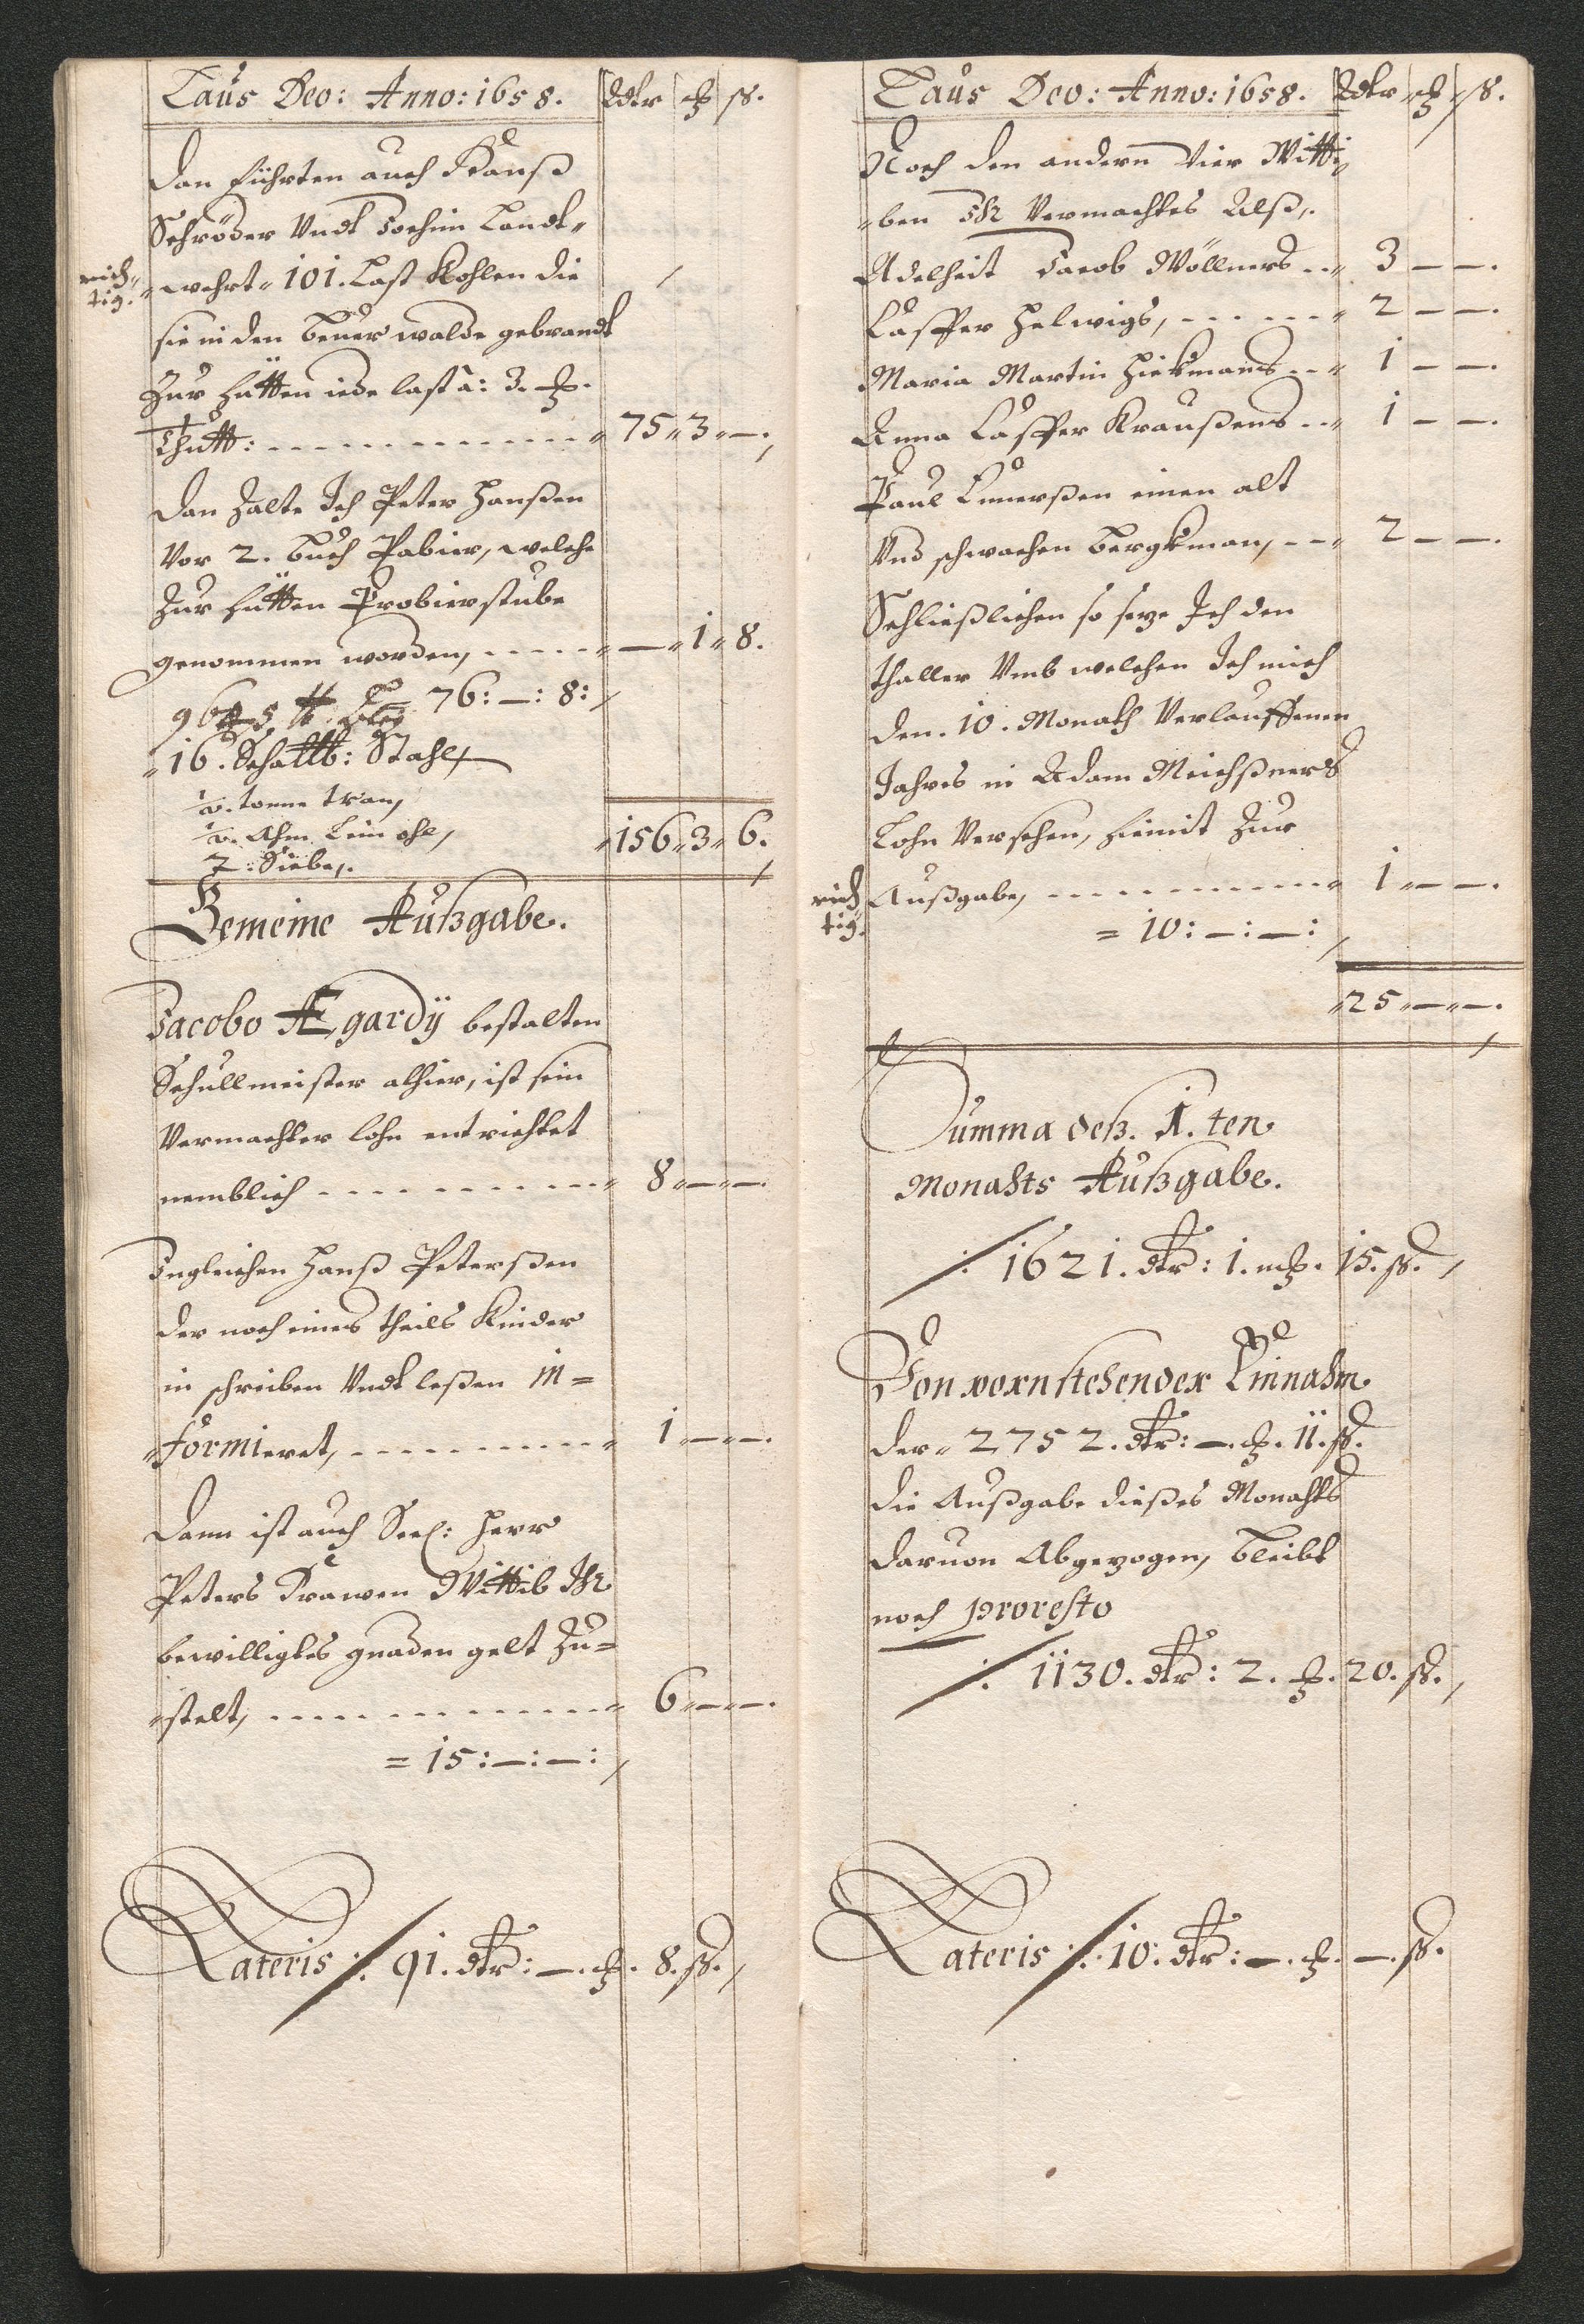 Laus Deo: Anno: 1658. Rdtr ɱ ß.
Dan führten auch Hanß
Schröder Vndt Jochim Landt„
rich„
tig.
„wehrt„ 101. Last Kohlen die
sie in den beuer walde gebrandt
Zur hütten iede last à: 3. ɱ.
Thutt: „ 75„ 3„ —.
Dan Zalte Ich Peter Hanßen
Vor 2. buch Pabier, welche
Zur hütten Probierstube
genommen worden, „ — „ 1„ 8.
76: —: 8:
„16. Schattlb: Stahl
tonne tran,
Ahm Lein ohl,
7: Siebe,. „156„ 3„ 6.
Gemeine Außgabe.
Jacobo Ægardÿ bestalten
Schullmeister alhier, ist sein
Vermachter lohn entrichtet
nemblich „ 8„—„—.
Ingleichen Hanß Peterßen
der noch eines theils Kinder
in schreiben Vndt leßen in=
„formieret, „ 1„—„—.
Dann ist auch Seel: Herr
Peters Drawen Wittib Ihr
bewilligtes gnaden gelt Zu=
„stelt, „ 6„—„—.
= 15: —: —:
Lateris ⁒ 91. dtr: —. ɱ. 8. ß.
Laus Deo: Anno: 1658. Rdtr ɱ ß.
Noch den andern Vier Witti„
„ben Ihr Vermachtes Alß,.
Adelheit Jacob Möllners „ 3 — —.
Casper Helwigs, „ 2 — —.
Maria Martin Hickmans „ 1 — —.
Anna Casper Kraußens „ 1 — —.
Paul Einerßen einen alt
Vnd schwachen bergkman, „ 2 — —.
Schließlichen so seze Ich den
thaller Vmb welchen Ich mich
den. 10. Monath Verlauffenen
Jahres in Adam Meichßners
Lohn Versehen, hiemit Zur
rich
tig.
Außgabe, „ 1„—„—.
= 10: —: —:
„25„—„—.
Summa deß. 1. ten
Monahts Außgabe.
⁒ 1621. dtr: 1. ɱ. 15. ß.
Von vornstehender Einnahm
der„ 2752. dtr: —. ɱ. 11. ß.
die Außgabe dießes Monahts
daruon Abgezogen, bleibt
noch proresto
⁒ 1130. dtr: 2. ɱ. 20. ß.
Lateris ⁒ 10. dtr: —. ɱ. —. ß.